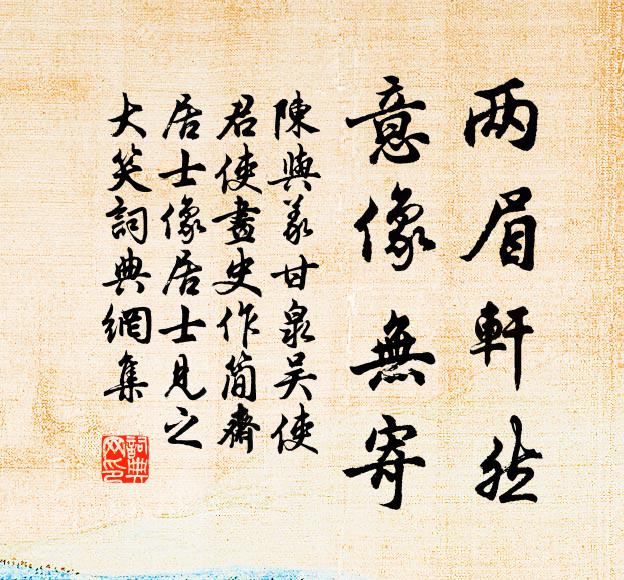 两眉軒然
意像無寄
陳與義甘泉吴使
君使畫史作简齋
居士像居士見之
大笑詞典網集
詞典网印